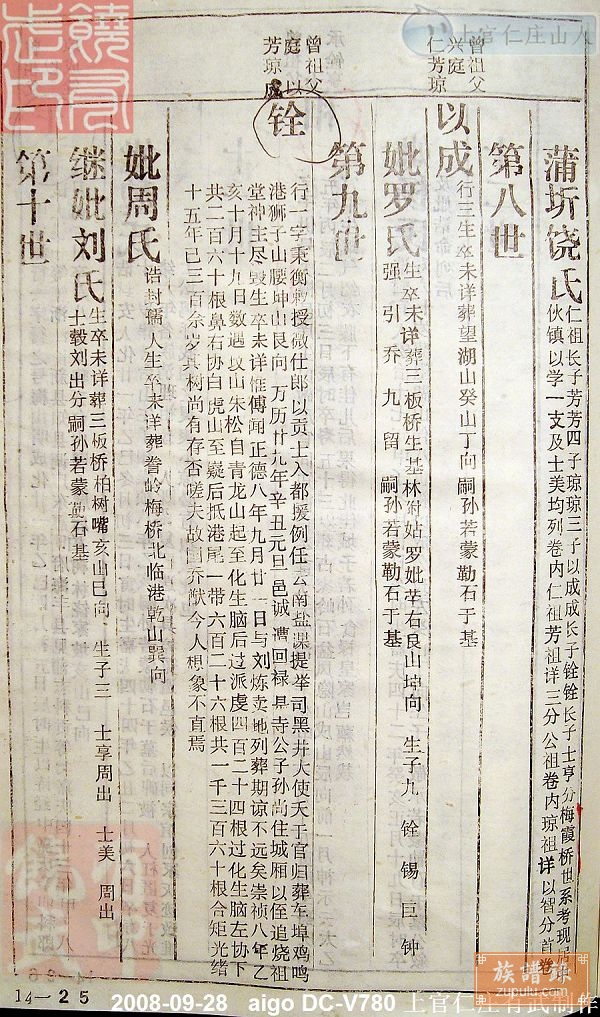 曾祖父
兴庭
仁芳琼
蒲圻饶氏
仁祖长子芳芳四子琼琼三子以成成长子铨铨长子士亨分梅霞桥世系考现居
伙镇以学一支及士美均列卷内仁祖芳祖详三分公祖卷内琼祖详以智分首卷
第八世
以成
行三生卒未详葬望湖山癸山丁向 嗣孙若蒙勒石于基
妣罗氏
生卒未详葬三板桥生基林附姑罗妣茔右艮山坤向 生子九 铨 锡 巨 钟
强 引 乔 九 留 嗣孙若蒙勒石于基
第九世
曾祖父
庭以
芳琼成
铨
行一字秉衡敕授微仕郎以贡士入都援例任云南盐课提举司黑井大使夭于官归葬车埠鸡鸣
港狮子山腰坤山艮向 万历廿九年辛丑元旦邑诚遭回禄县寺公子孙尚住城厢以侄追烧祖
堂神主尽毁生卒未详惟傅闻正德八年九月廿一日与刘炼卖地列葬期谅不远矣崇祯八年乙
亥十月十九日数遇坟山朱松自青龙山起至化生脑后过派虔四百二十四根过化生脑左协下
共二百六十根鼻右协白虎山至嶷后抵港尾一带六百二十六根共一千三百六十根合矩光绪
十五年已三百余岁其树尚有存否嗟夫故国乔猷今人想象不直焉
妣周氏
诰封孺人生卒未详葬誊岭梅桥北临港乾山巽向
继妣刘氏
生卒未详葬三板桥柏树嘴亥山巳向 生子三 士享周出 士美 周出
士毂刘出分嗣孙若蒙勤石基
第十世
14—25
2008-09-28 aigo DC-V780 上官仁庄有武制作
上官仁庄山人
族谱录
zupulu.com